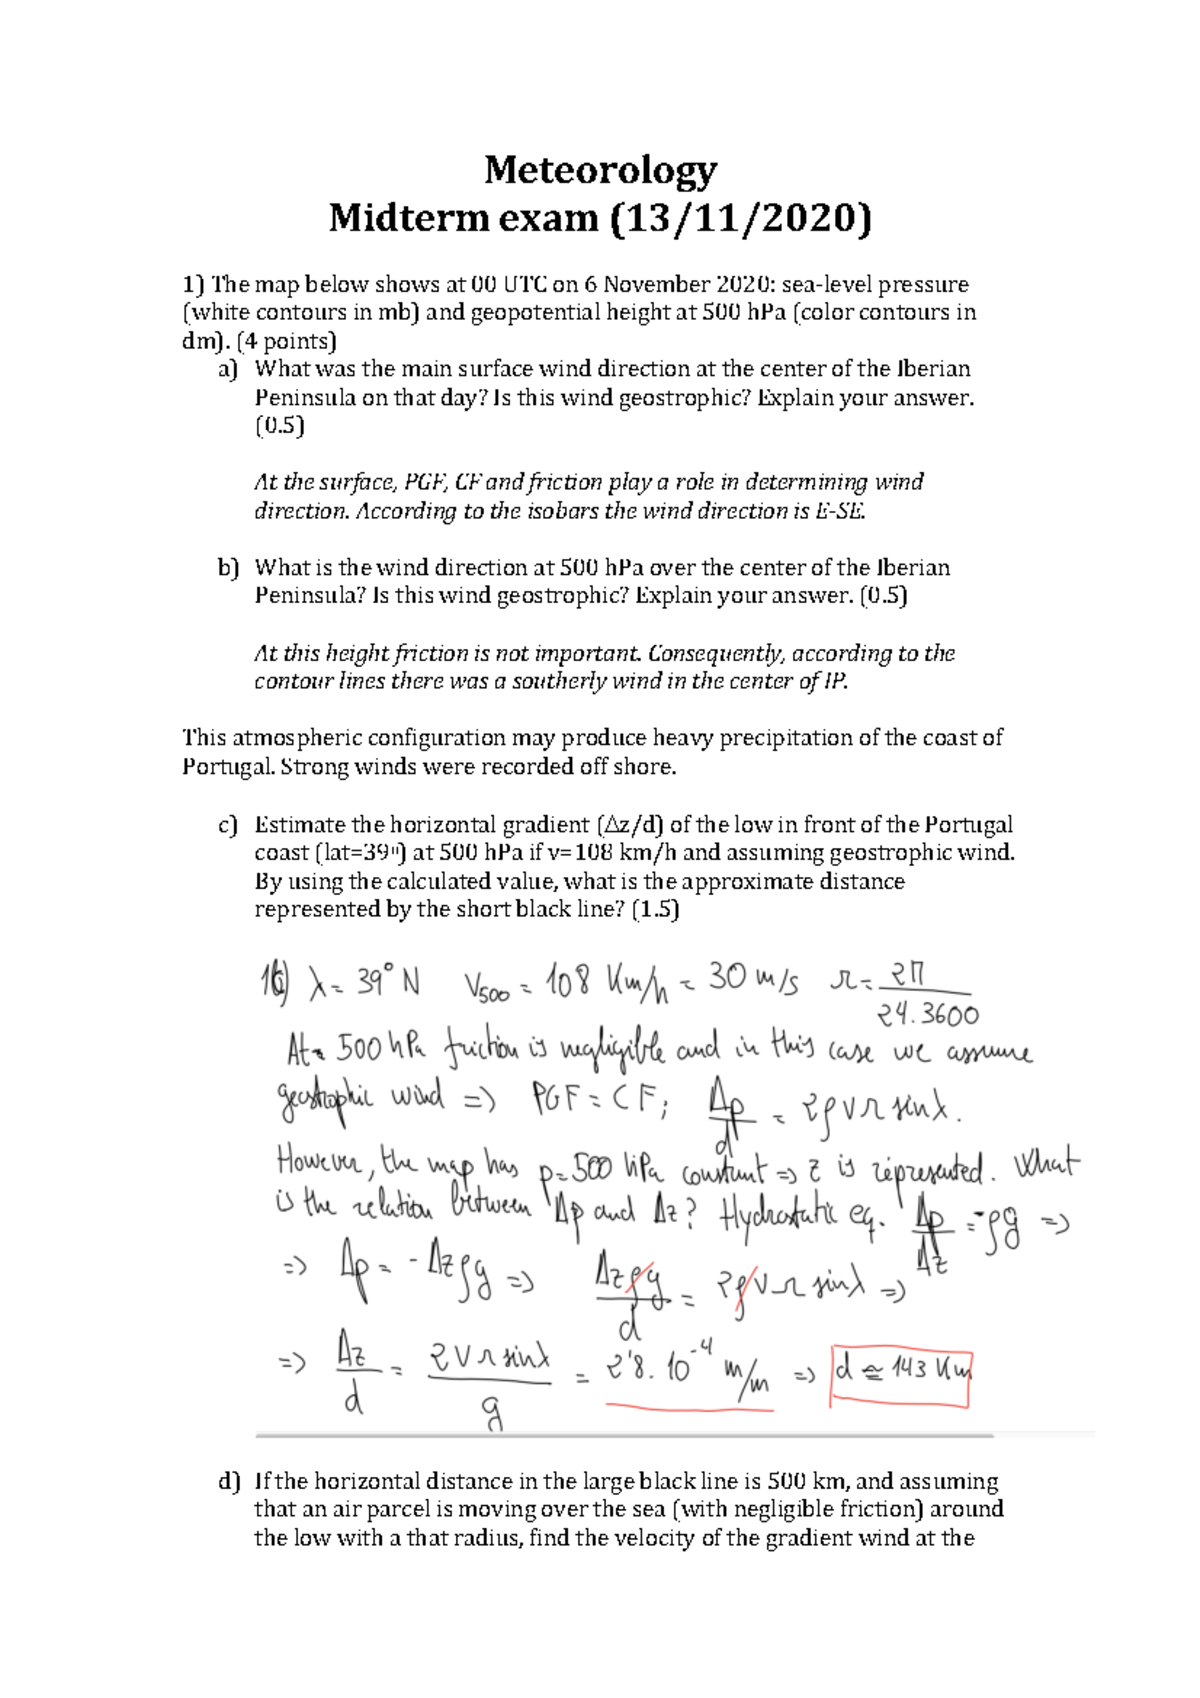 Meteorology
Midterm exam (13/11/2020)
1) The map below shows at 00 UTC on 6 November 2020: sea-level pressure
(white contours in mb) and geopotential height at 500 hPa (color contours in
dm). (4 points)
a) What was the main surface wind direction at the center of the Iberian
Peninsula on that day? Is this wind geostrophic? Explain your answer.
(0.5)
At the surface, PGF, CF and friction play a role in determining wind
direction. According to the isobars the wind direction is E-SE.
b) What is the wind direction at 500 hPa over the center of the Iberian
Peninsula? Is this wind geostrophic? Explain your answer. (0.5)
At this height friction is not important. Consequently, according to the
contour lines there was a southerly wind in the center of IP.
This atmospheric configuration may produce heavy precipitation of the coast of
Portugal. Strong winds were recorded off shore.
c) Estimate the horizontal gradient (Δz/d) of the low in front of the Portugal
coast (lat=39º) at 500 hPa if v=108 km/h and assuming geostrophic wind.
By using the calculated value, what is the approximate distance
represented by the short black line? (1.5)
λ = 39° N V500 = 108 Km/h = 30 m/s Ω = 2π / 24.3600
At 500 hPa friction is negligible and in this case we assume
geostrophic wind => PGF = CF; Δp/d = 2ρVΩ sinλ.
However, the map has p=500 hPa constant => z is represented. What
is the relation between Δp and Δz? Hydrostatic eq. Δp/Δz = -ρg =>
=> Δp = -Δzρg => Δzρg/d = 2ρVΩ sinλ =>
=> Δz/d = 2VΩ sinλ / g = 2'8.10^-4 m/m => d ≅ 143 Km
d) If the horizontal distance in the large black line is 500 km, and assuming
that an air parcel is moving over the sea (with negligible friction) around
the low with a that radius, find the velocity of the gradient wind at the